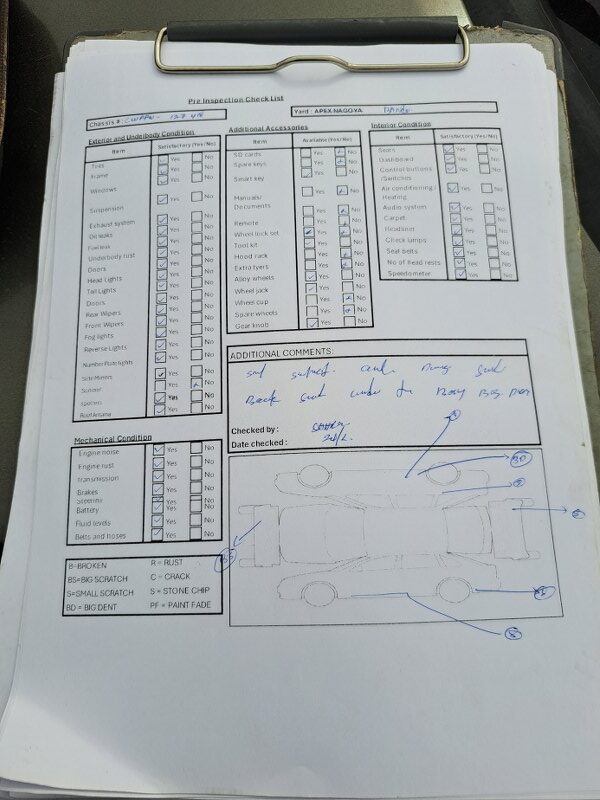 Pre Inspection Check List
Chassis #:
Yard : APEX NAGOYA
Exterior and Underbody Condition
Item Satisfactory (Yes/No)
Tires Yes No
Frame Yes No
Windows Yes No
Suspension Yes No
Exhaust system Yes No
Oil leaks Yes No
Fuel leak Yes No
Underbody rust Yes No
Doors Yes No
Head Lights Yes No
Tail Lights Yes No
Doors Yes No
Rear Wipers Yes No
Front Wipers Yes No
Fog lights Yes No
Reverse Lights Yes No
Number Plate lights Yes No
Side Mirrors Yes No
Sunroof Yes No
Spoilers Yes No
Roof Antena Yes No
Mechanical Condition
Engine noise Yes No
Engine rust Yes No
Transmission Yes No
Brakes Yes No
Steering Yes No
Battery Yes No
Fluid levels Yes No
Belts and hoses Yes No
B=BROKEN R = RUST
BS=BIG SCRATCH C = CRACK
S=SMALL SCRATCH S = STONE CHIP
BD = BIG DENT PF = PAINT FADE
Additional Accessories
Item Available (Yes/No)
SD cards Yes No
Spare keys Yes No
Smart key Yes No
Manuals/
Documents Yes No
Remote Yes No
Wheel lock set Yes No
Tool kit Yes No
Hood rack Yes No
Extra tyers Yes No
Alloy wheels Yes No
Wheel jack Yes No
Wheel cup Yes No
Spare wheels Yes No
Gear knob Yes No
Interior Condition
Item Satisfactory (Yes/No)
Seats Yes No
Dashboard Yes No
Control buttons
/Switches Yes No
Air conditioning /
Heating Yes No
Audio system Yes No
Carpet Yes No
Headliner Yes No
Check lamps Yes No
Seat belts Yes No
No of Head rests Yes No
Speedometer Yes No
ADDITIONAL COMMENTS:
Checked by :
Date checked :
BD
BS